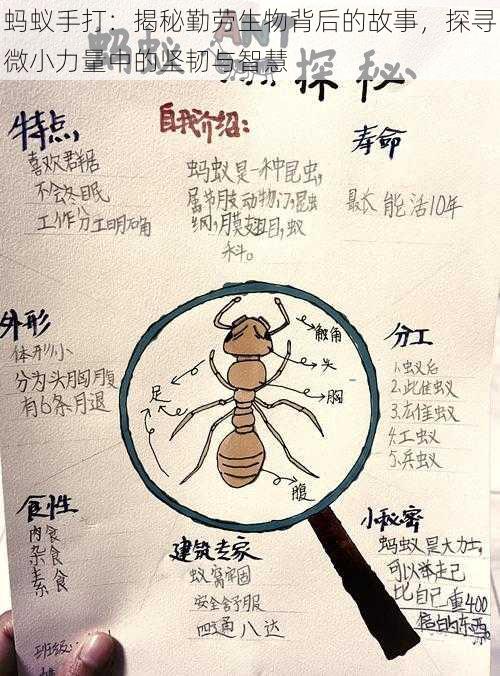 蚂蚁手打：揭秘勤劳生物背后的故事，探寻
微小力量中的坚韧与智慧
蚂蚁 ANT
探秘
特点
喜欢群居
不会冬眠
工作分工明确
自我介绍：
蚂蚁是一种昆虫，
属节肢动物门，昆虫
纲，膜翅目，蚁
科。
寿命
最长能活10年
外形
体形小
分为头胸腹
有6条月退
触角
头
胸
足
腹
分工
1.蚁后
2.此住蚁
3.右住蚁
4.工蚁
5.兵蚁
食性
肉食
杂食
素食
建筑专家
蚁窝牢固
安全舒服
四通八达
小秘密
蚂蚁是大力士，
可以举走己
比自己重400
倍的东西。
班级：